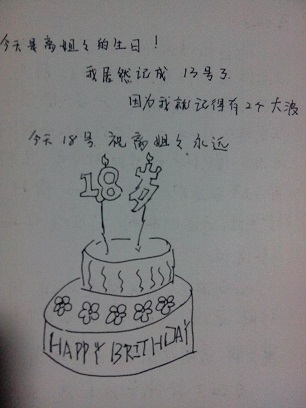 今天是离姐々的生日！
我居然记成 13号了
因为我就记得有2个大波
今天18号 祝离姐々永远
18岁
HAPPY BRITHDAY